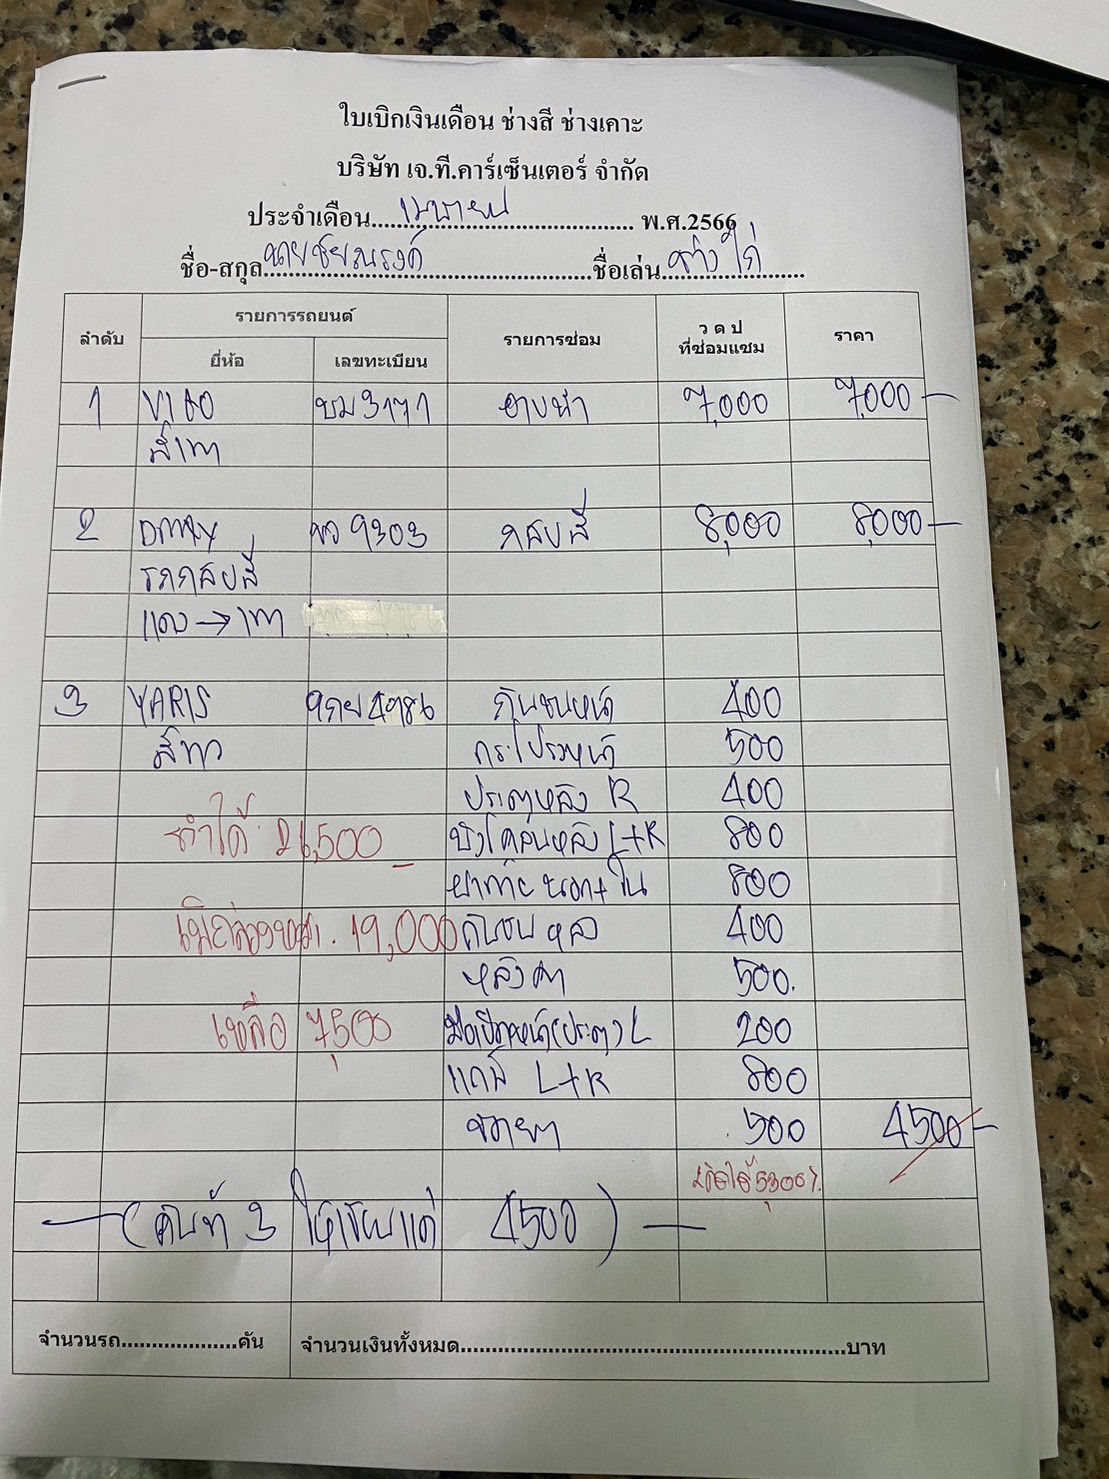 ใบเบิกเงินเดือน ช่างสี ช่างเคาะ
บริษัท เจ.ที.คาร์เซ็นเตอร์ จำกัด
ประจำเดือน เมษายน พ.ศ.2566
ชื่อ-สกุล นายชัยณรงค์ ชื่อเล่น ช่างไก่
ลำดับ รายการรถยนต์ รายการซ่อม ว ด ป ที่ซ่อมแซม ราคา
ยี่ห้อ เลขทะเบียน
1 VIGO 3171 อาบน้ำ 7,000 7,000 —
สีเทา
2 DMAX 9303 กลบสี 8,000 8,000 —
รถกลบสี
แดง → เทา
3 YARIS 4986 กันชนหน้า 400
สีขาว กระโปรงหน้า 500
ประตูหลัง R 400
ทำได้ 26,500 บังโคลนหลัง L+R 800
ฝาท้าย นอก+ใน 800
19,000 กันชนหลัง 400
หลังคา 500
เหลือ 7,500 (ประตู) L 200
แก้ม L+R 800
500 4500 —
คิดได้ 5,300
— (คันที่ 3 ให้เขียนแค่ 4500) —
จำนวนรถ คัน จำนวนเงินทั้งหมด บาท